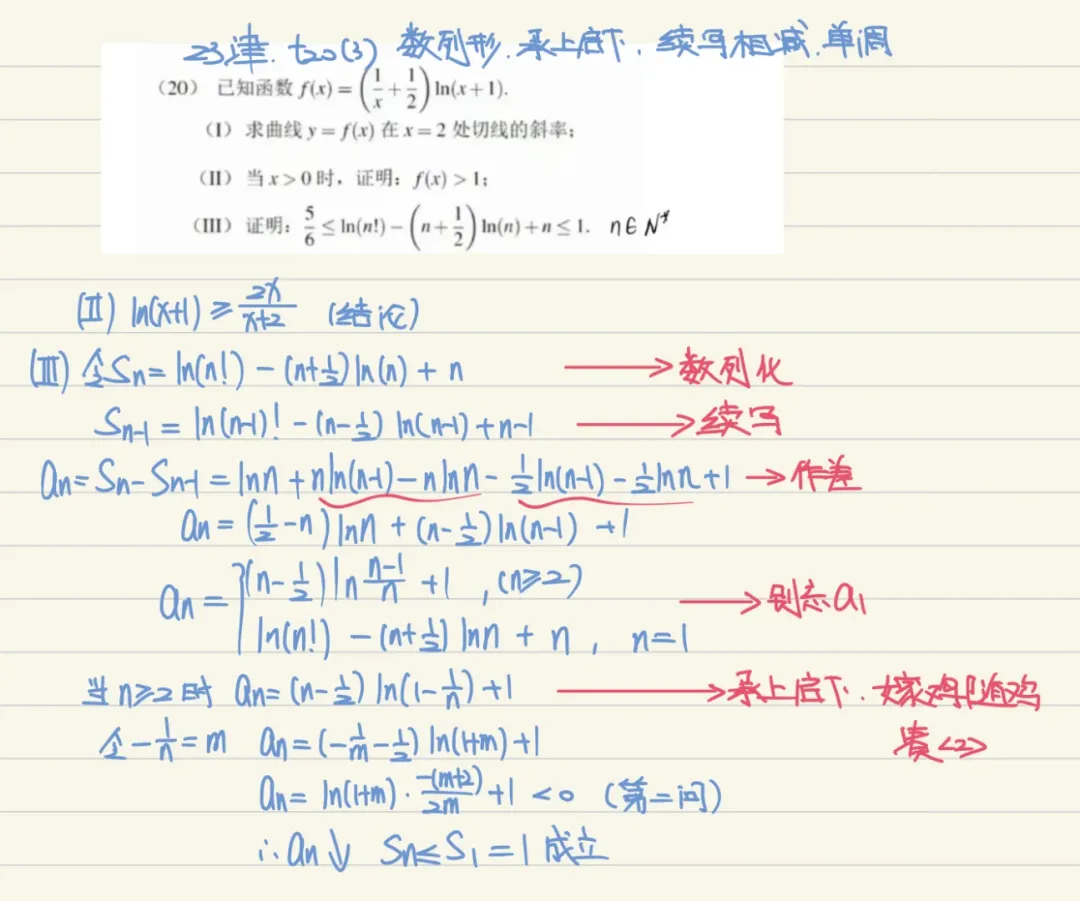 23津.t20(3) 数列形.承上启下.续写相减.单调
(20) 已知函数 f(x) = (1/x + 1/2) ln(x+1).
(I) 求曲线 y = f(x) 在 x = 2 处切线的斜率;
(II) 当 x > 0 时, 证明: f(x) > 1;
(III) 证明: 5/6 ≤ ln(n!) − (n + 1/2) ln(n) + n ≤ 1. n∈N*
(II) ln(x+1) ≥ 2x/(x+2) (结论)
(III) 令Sn = ln(n!) − (n+1/2)ln(n) + n → 数列化
Sn-1 = ln(n-1)! − (n-1/2) ln(n-1) + n-1 → 续写
an = Sn − Sn-1 = lnn + nln(n-1) − nlnn − 1/2ln(n-1) − 1/2lnn + 1 → 作差
an = (1/2 − n) lnn + (n − 1/2) ln(n-1) + 1
an = { (n − 1/2) ln (n-1)/n + 1 , (n≥2)
ln(n!) − (n+1/2) lnn + n , n=1 → 别忘a1
当n≥2时 an = (n − 1/2) ln(1 − 1/n) + 1 → 承上启下.嫁鸡随鸡
令 −1/n = m an = (−1/m − 1/2) ln(1+m) + 1 <2>
an = ln(1+m) · −(m+2)/2m + 1 < 0 (第二问)
∴ an↓ Sn ≤ S1 = 1 成立